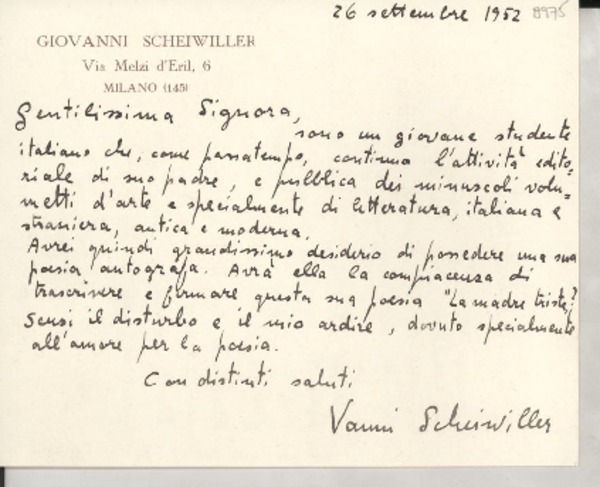 26 settembre 1952 8975
GIOVANNI SCHEIWILLER
Via Melzi d'Eril, 6
MILANO (145)
Gentilissima Signora,
sono un giovane studente
italiano che, come passatempo, continua l'attività edito-
riale di suo padre, e pubblica dei minuscoli volu-
metti d'arte e specialmente di letteratura, italiana e
straniera, antica e moderna.
Avrei quindi grandissimo desiderio di possedere una sua
poesia autografa. Avrà ella la compiacenza di
trascrivere e firmare questa sua poesia "La madre triste"?
Scusi il disturbo e il mio ardire, dovuto specialmente
all'amore per la poesia.
Con distinti saluti
Vanni Scheiwiller